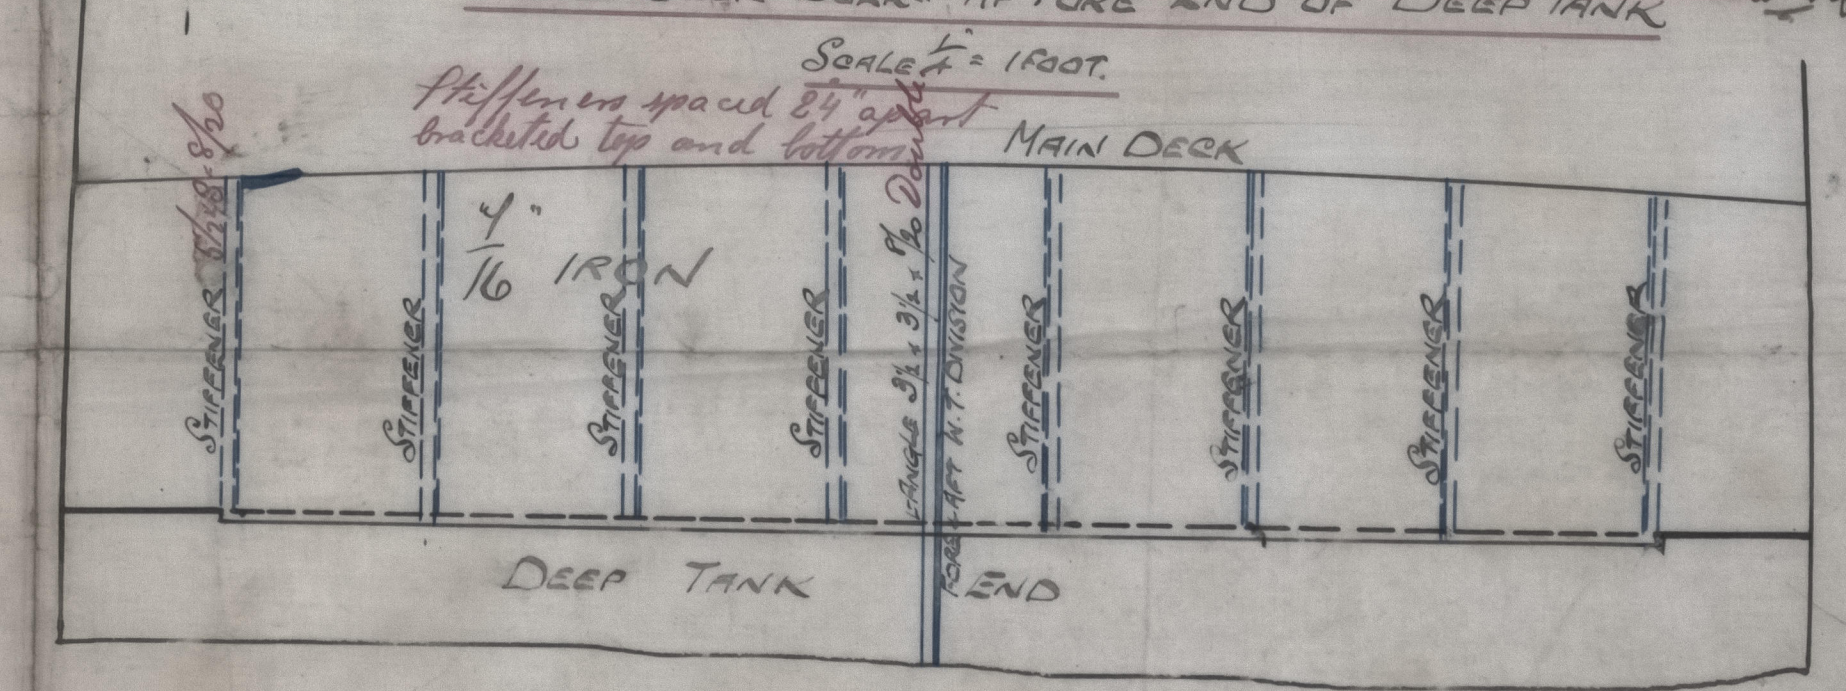 AT FORE END OF DEEP TANK
SCALE 1/4" = 1 FOOT.
Stiffeners spaced 24" apart
bracketed top and bottom
MAIN DECK
8/20
Double
7/16" IRON
STIFFENER
STIFFENER
STIFFENER
STIFFENER
L ANGLE 3½ x 3½ x 8/20
FORE & AFT W.T. DIVISION
STIFFENER
STIFFENER
STIFFENER
STIFFENER
DEEP TANK END